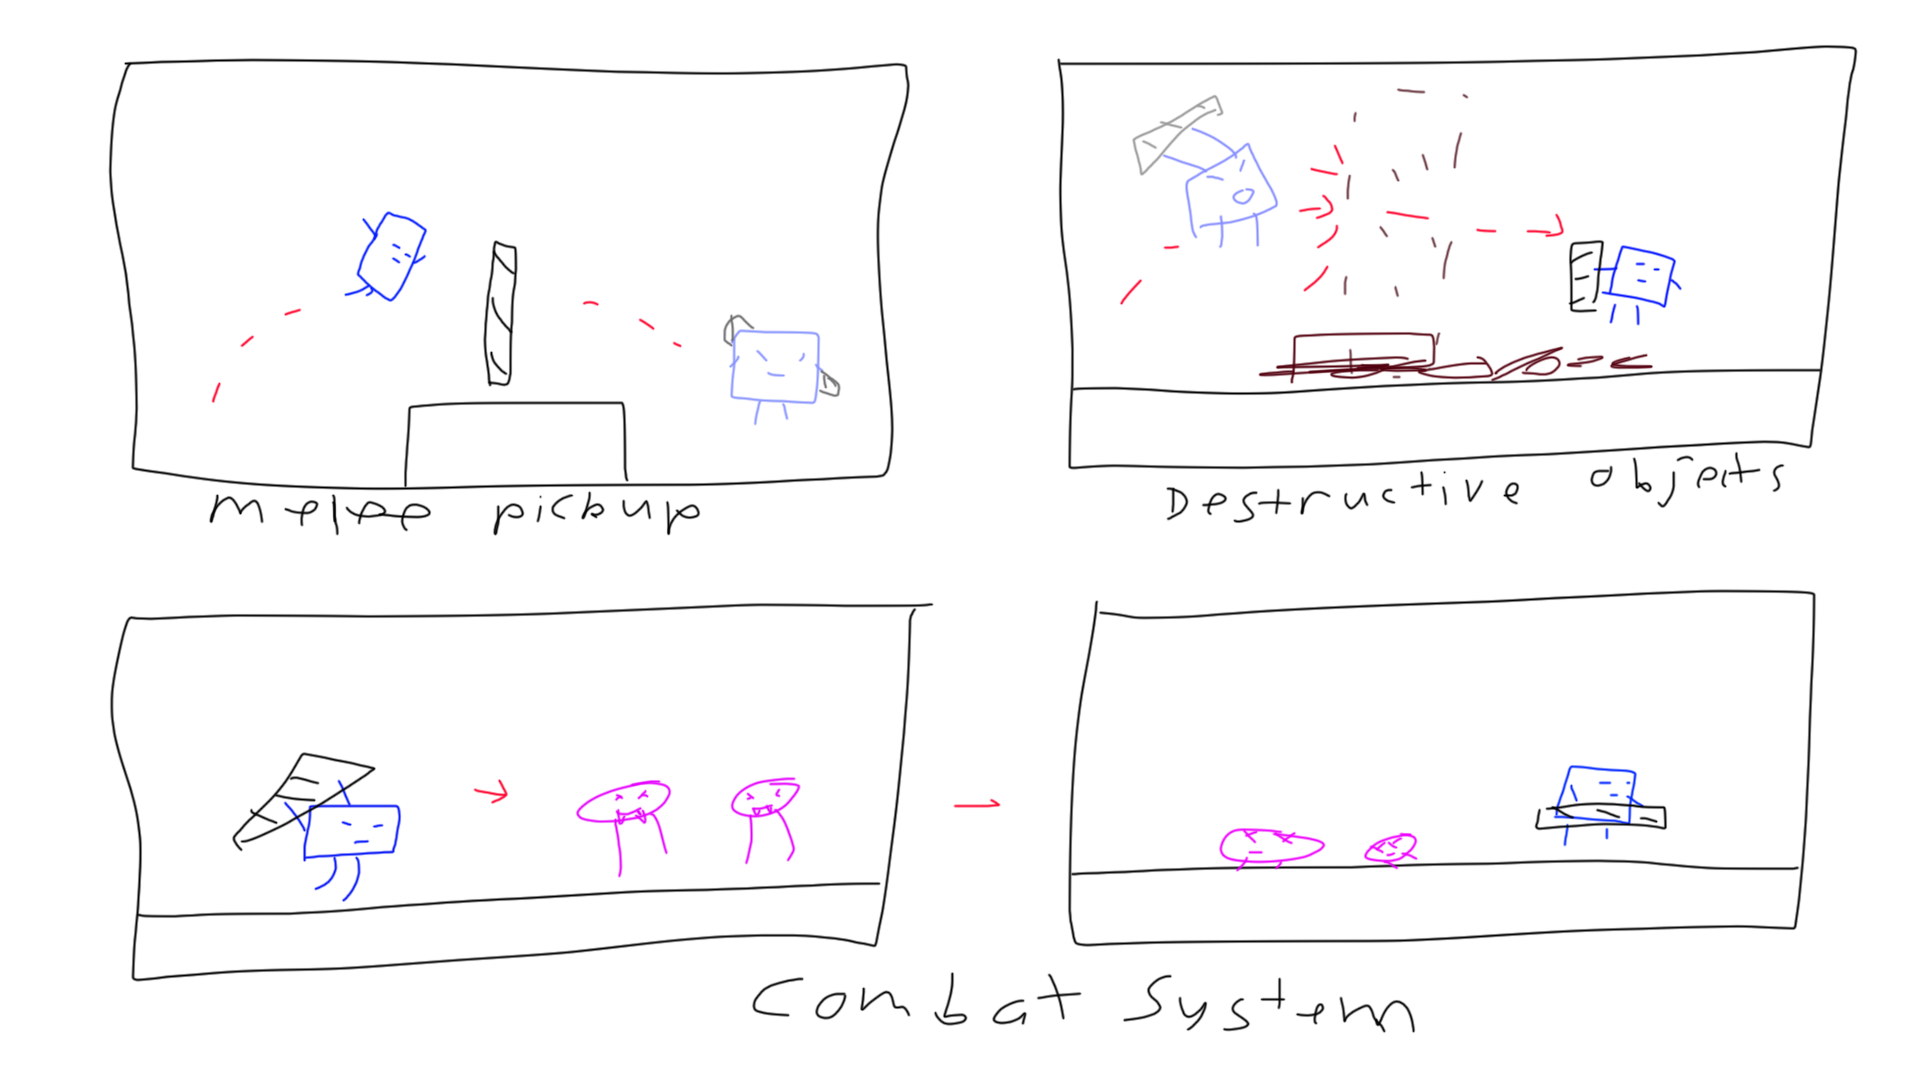 melee pickup
Destructive objects
Combat System